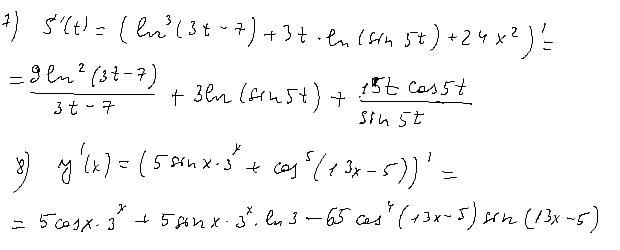 7) S'(t) = (ln³(3t-7) + 3t · ln(sin 5t) + 24x²)' =
= 9ln²(3t-7) / 3t-7 + 3ln(sin5t) + 15t cos5t / sin 5t
8) y'(x) = (5 sin x · 3ˣ + cos⁵(13x-5))' =
= 5cosx · 3ˣ + 5 sin x · 3ˣ · ln 3 - 65 cos⁴(13x-5) sin(13x-5)